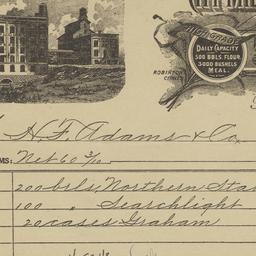 HIGH GRADE
DAILY CAPACITY
500 BBLS. FLOUR.
3000 BUSHELS
MEAL.
H. F. Adams & Co.
MS: Net 60 3/10
200 bbls, Northern Sta
100 " Searchlight
20 cases Graham